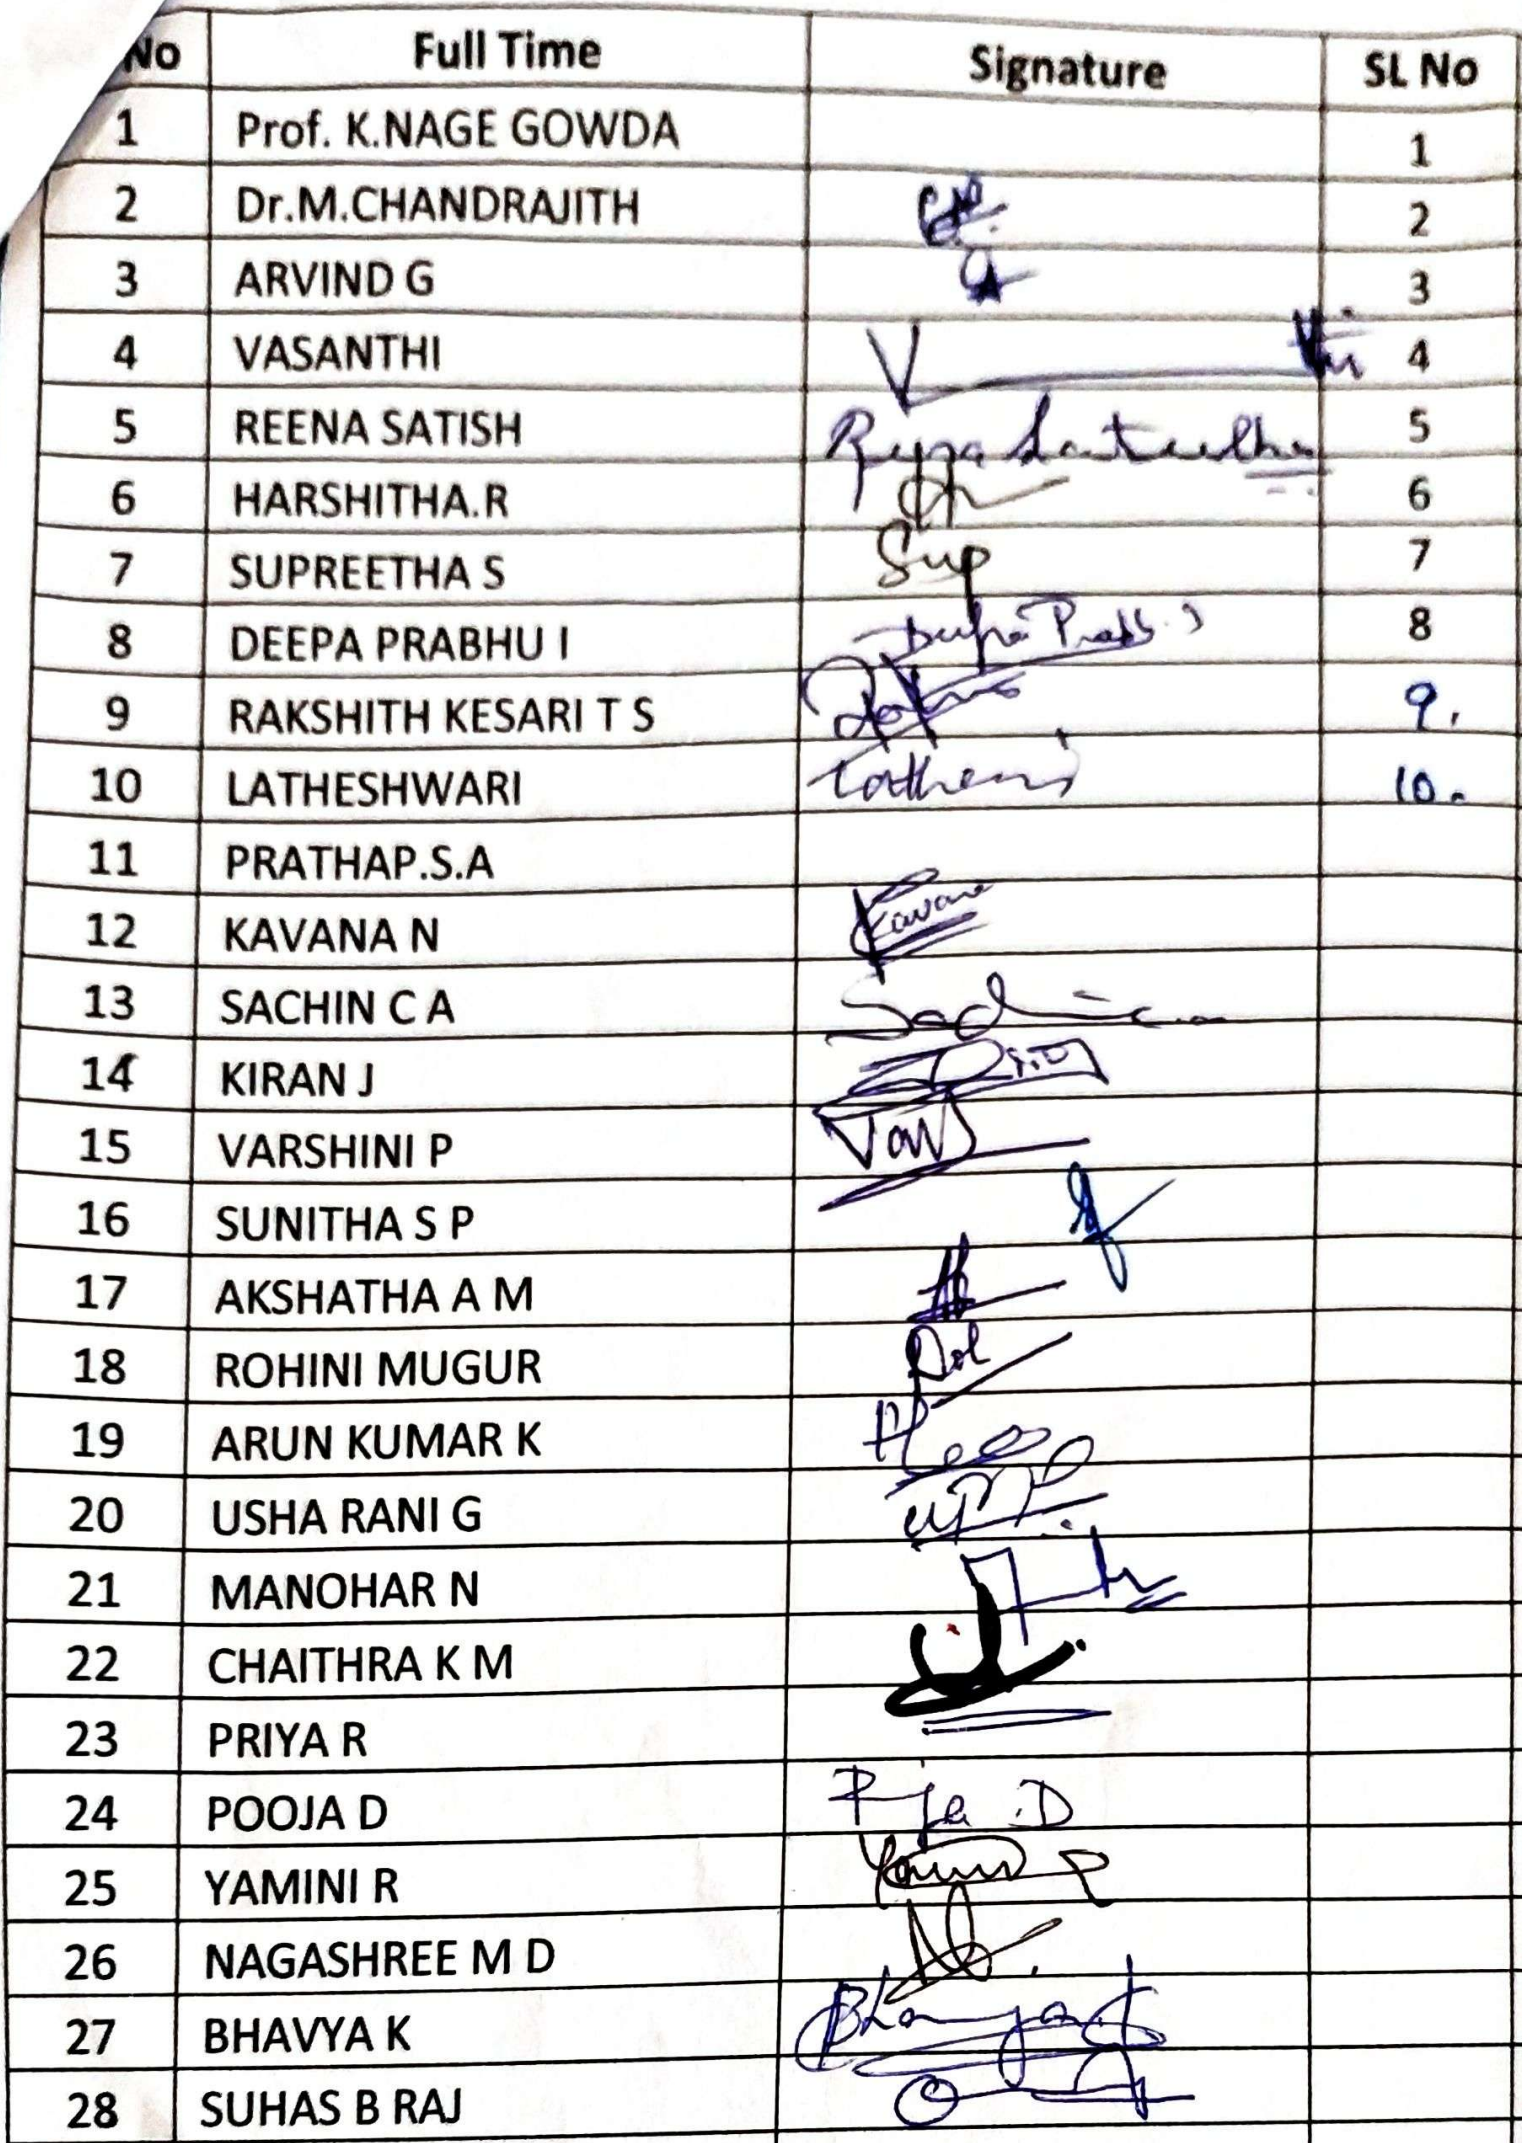 No Full Time Signature SL No
1 Prof. K.NAGE GOWDA 1
2 Dr.M.CHANDRAJITH 2
3 ARVIND G 3
4 VASANTHI V 4
5 REENA SATISH 5
6 HARSHITHA.R 6
7 SUPREETHA S Sup 7
8 DEEPA PRABHU I 8
9 RAKSHITH KESARI T S 9.
10 LATHESHWARI 10.
11 PRATHAP.S.A
12 KAVANA N Kavana
13 SACHIN C A
14 KIRAN J
15 VARSHINI P
16 SUNITHA S P
17 AKSHATHA A M
18 ROHINI MUGUR
19 ARUN KUMAR K
20 USHA RANI G
21 MANOHAR N
22 CHAITHRA K M
23 PRIYA R
24 POOJA D
25 YAMINI R
26 NAGASHREE M D
27 BHAVYA K
28 SUHAS B RAJ